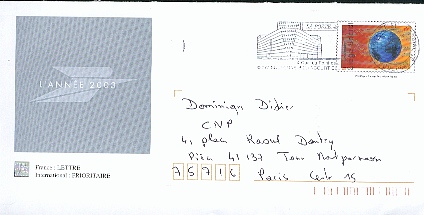 L'ANNÉE 2000
Dominique Didier
CNP
4, place Raoul Dautry
Pièce 41 137 Tour Montparnasse
75716 Paris Cedex 15
France : LETTRE
International : PRIORITAIRE